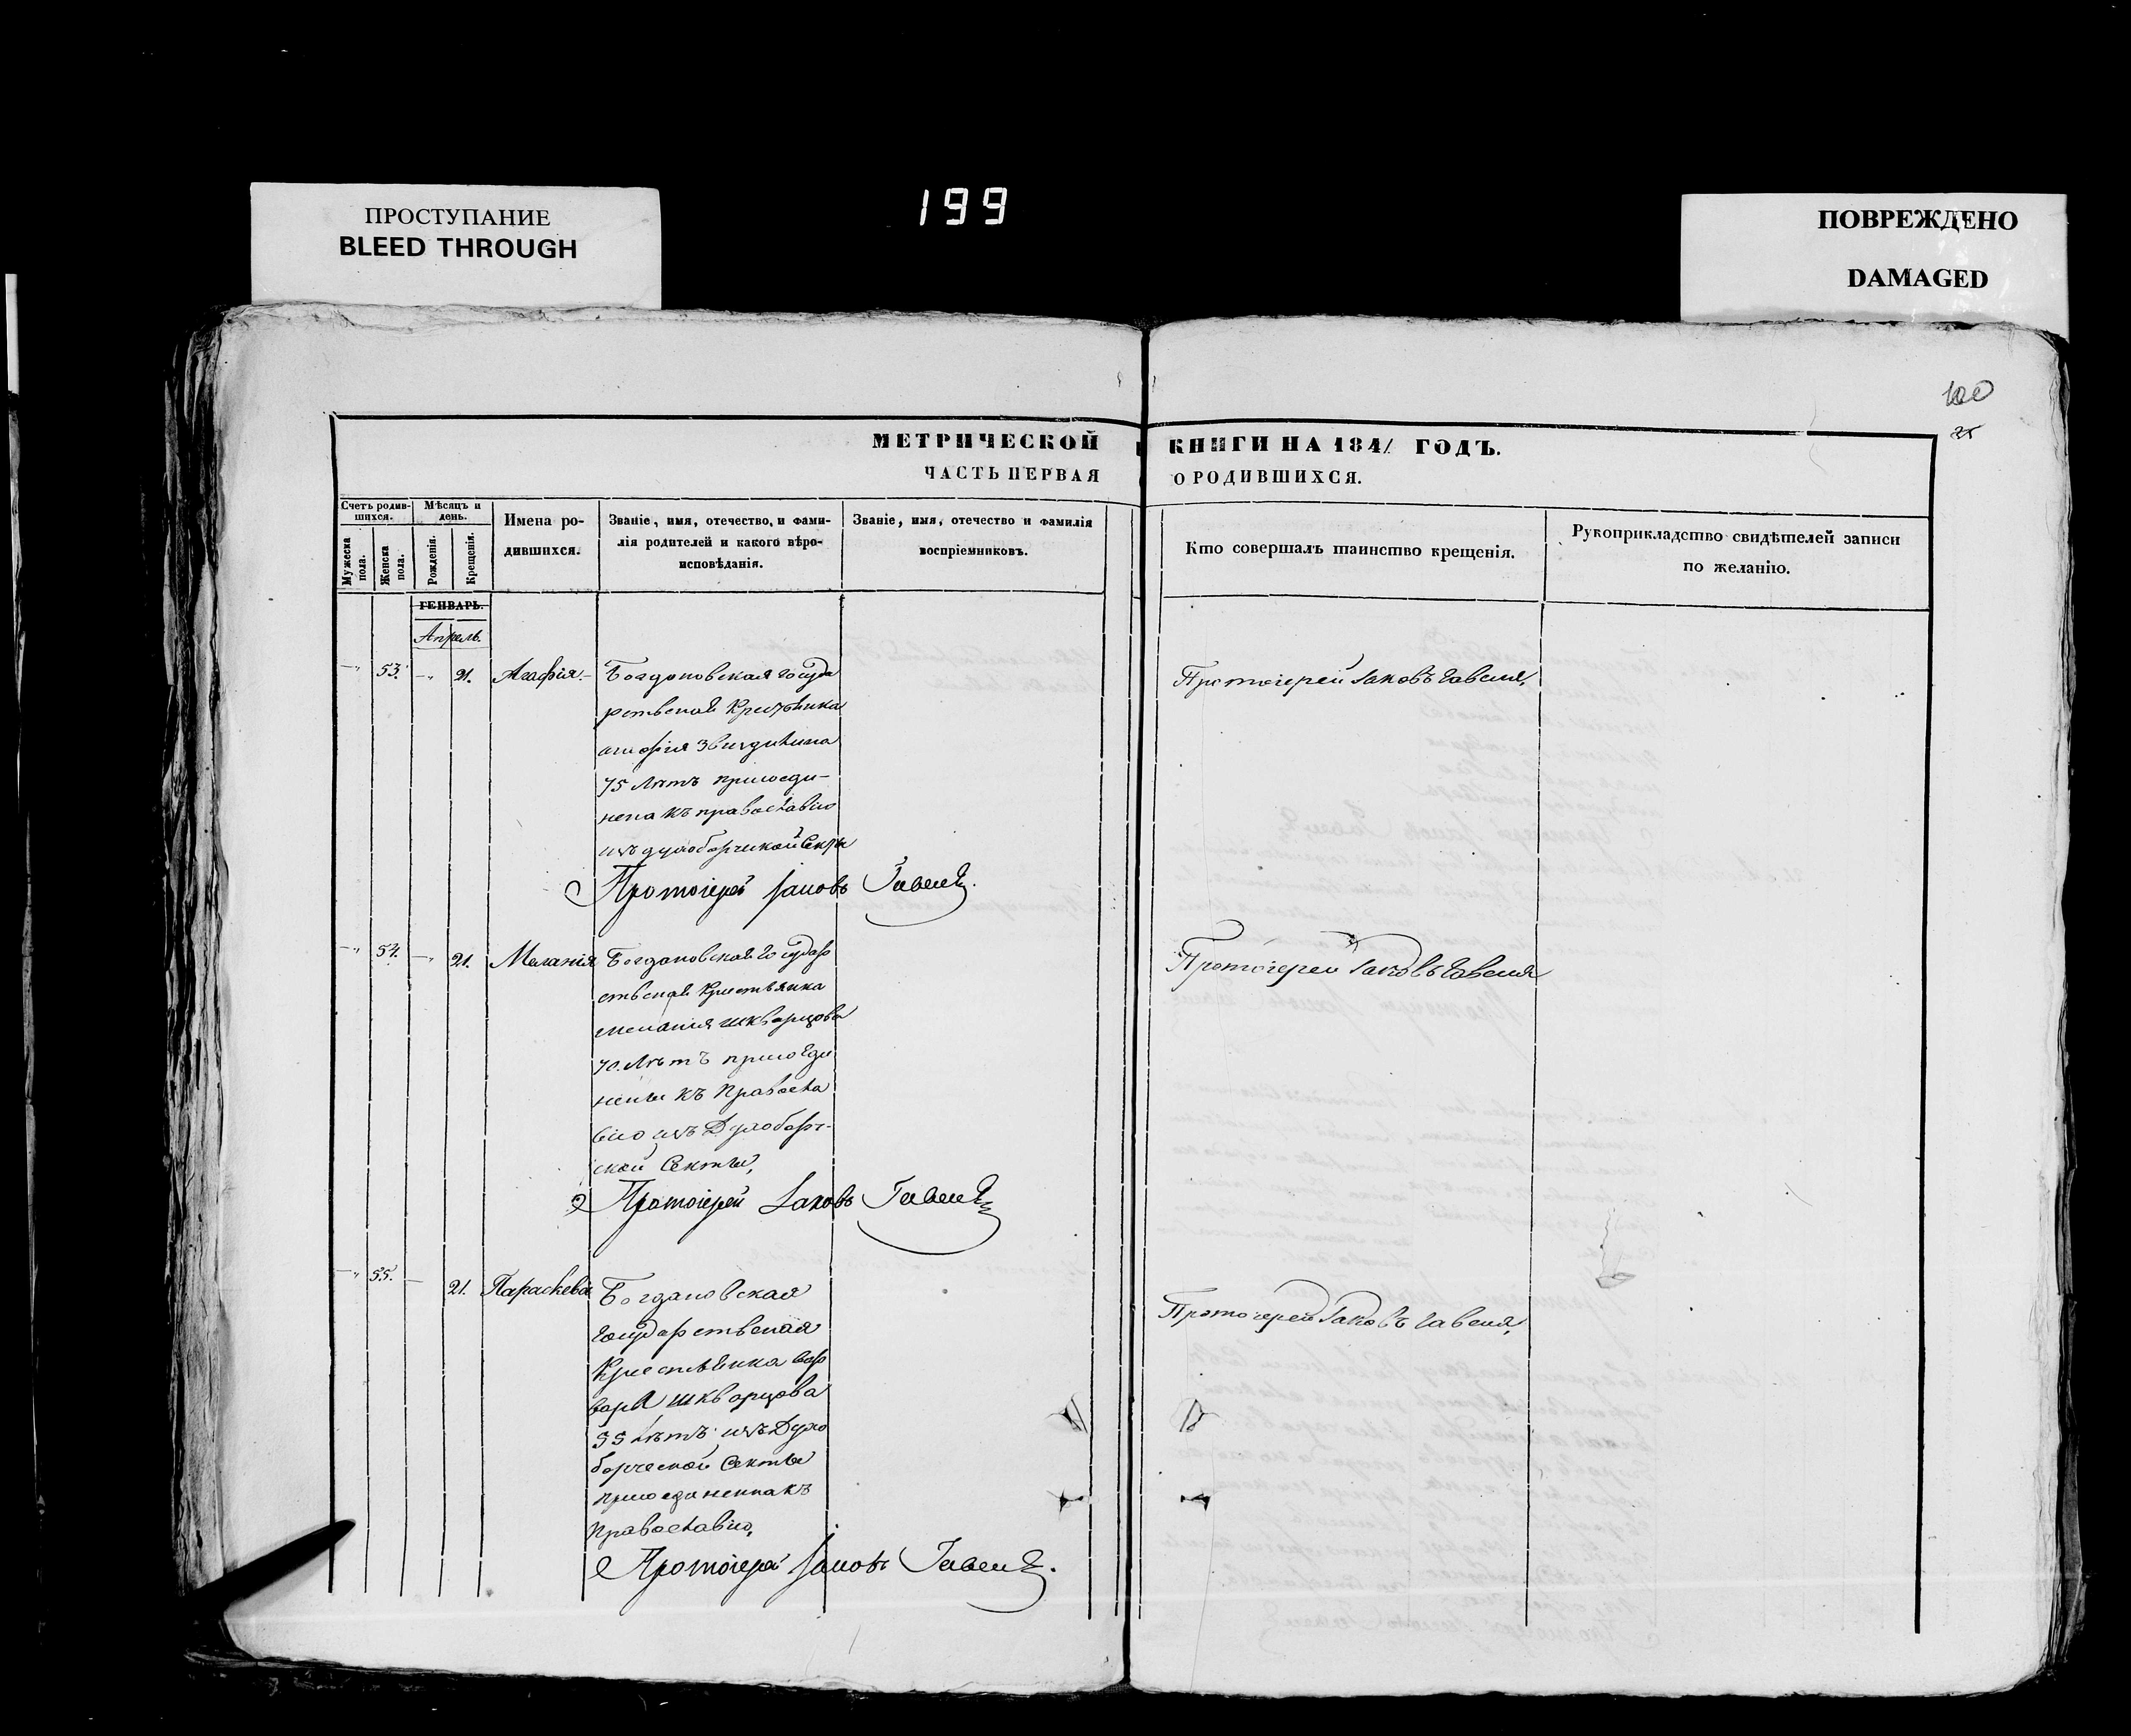 ПРОСТУПАНИЕ
BLEED THROUGH
199
ПОВРЕЖДЕНО
DAMAGED
100
25
МЕТРИЧЕСКОЙ КНИГИ НА 1841 ГОДЪ.
ЧАСТЬ ПЕРВАЯ О РОДИВШИХСЯ.
Счетъ родив-
шихся.
Мужеска
пола.
Женска
пола.
Мѣсяцъ и
день.
Рожденія.
Крещенія.
Имена ро-
дившихся.
Званіе, имя, отечество, и фами-
лія родителей и какого вѣро-
исповѣданія.
Званіе, имя, отечество и фамилія
воспріемниковъ.
Кто совершалъ таинство крещенія.
Рукоприкладство свидѣтелей записи
по желанію.
ГЕНВАРЬ.
Апрель.
53. 21. Агафія
Богдоновская госуда
рственая Крестьянка
агафія
75 Лѣтъ присоеди-
нена къ православію
изъ духоборческой Секты
Протоіерей Іаковъ
Протоіерей Іаковъ
54. 21. Меланія
Богдановская государ
ственая Крестьянка
мелания шкварцова
70. Лѣтъ присоеди
нены къ Правосла
вію изъ Духоборч-
ской Секты,
Протоіерей Іаковъ
Протоіерей Іаковъ
55. 21. Параскева
Богдановская
государственая
Крестьянка вар
вара шкварцова
55 лѣтъ изъ Духо
борческой Секты
присоединенна къ
Православію,
Протоіерей Іаковъ
Протоіерей Іаковъ